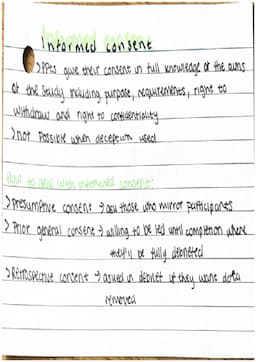 Informed consent
>PPts give their consent in full knowledge of the aims
of the study including purpose, requirements, right to
withdraw and right to confidentiality
>not possible when deception used
How to deal with informed consent:
>Presumptive consent → ask those who mirror participants
>Prior general consent → willing to be lied until completion where
they'll be fully debriefed
>Retrospective consent → asked in debrief if they want data
removed